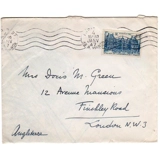 Mrs Doris M. Green
12 Avenue Mansions
Finchley Road
London N.W.3
Angleterre